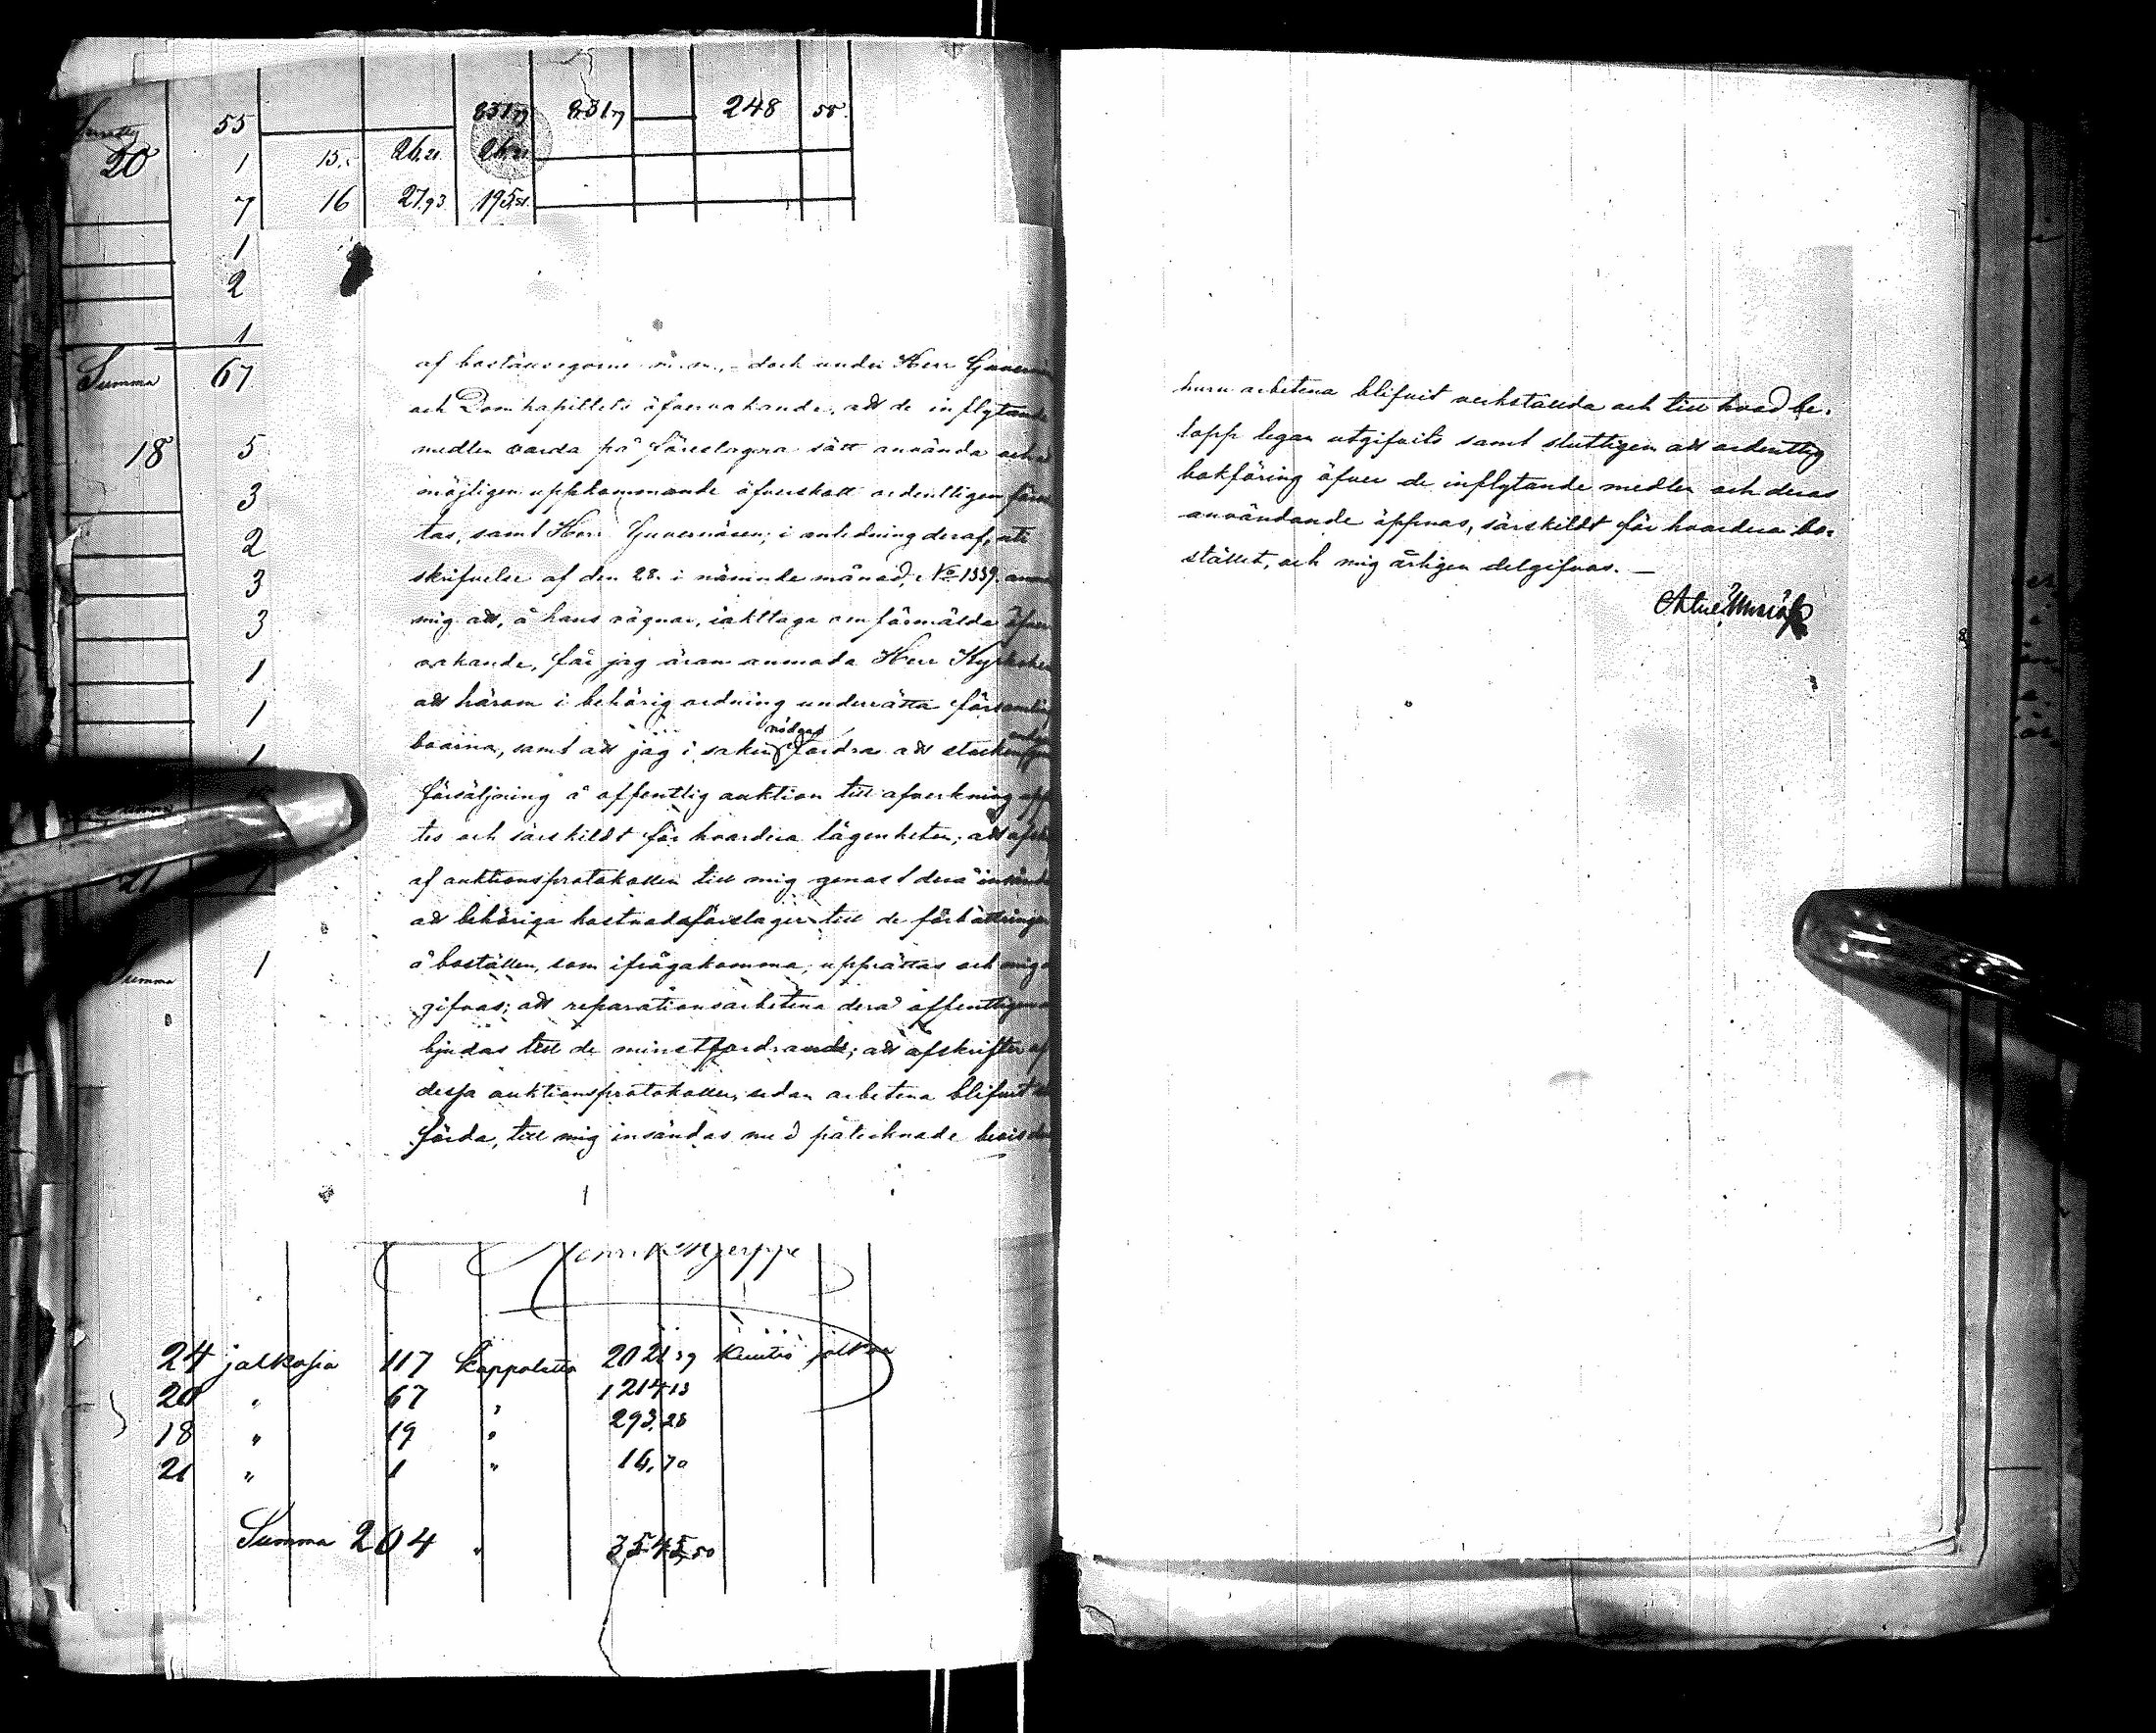 55 831,79 831,79 248 58.
20 1 15. 26,21 26,21
7 16 27,93 195,51
1
2
1
Summa 67
18 5
3
2
3
3
1
1
1
21 1
Summa 1
af boställsegorne m. m., dock under Herr Guvernör
och Domkapitlets öfvervakande, att de inflytande
medlen varda på föreslagna sätt använda och
möjligen uppkommande öfverskott ordentligen förva
tas, samt Herr Guvernören, i anledning deraf, uti
skrifvelse af den 28. i nämnde månad, No 1339. anmo
mig att, å hans vägnar, iakttaga omförmälda öfver
vakande, får jag äran anmoda Herr Kyrkoher
att härom i behörig ordning underrätta församling
boarna, samt att jag i saken nödgas fordra att stocken
försäljning å offentlig auktion till afverkning upp
tes och särskildt för hvardera lägenheten; att afskr
af auktionsprotokollen till mig genast derå insända
att behöriga kostnadsförslager till de förbättringar
å boställen, som ifrågakomma, upprättas och mig
gifvas; att reparationsarbetena derå offentligen
bjudas till de minstfordrande; att afskrifter af
dessa auktionsprotokoller, sedan arbetena blifvit
förda, till mig insändas med påtecknade bevis
Henrik Hjerppe
24 jalkasia 117 kappaletta 2021,39 kuutio jalkaa
20 " 67 " 1214,13
18 " 19 " 293,28
21 " 1 " 16,70
Summa 204 " 3545,50
huru arbetena blifvit verkställda och till hvad be-
lopp legan utgifvits samt slutligen att ordentlig
bokföring öfver de inflytande medlen och deras
användande öppnas, särskildt för hvardera bo-
stället, och mig årligen delgifvas. —